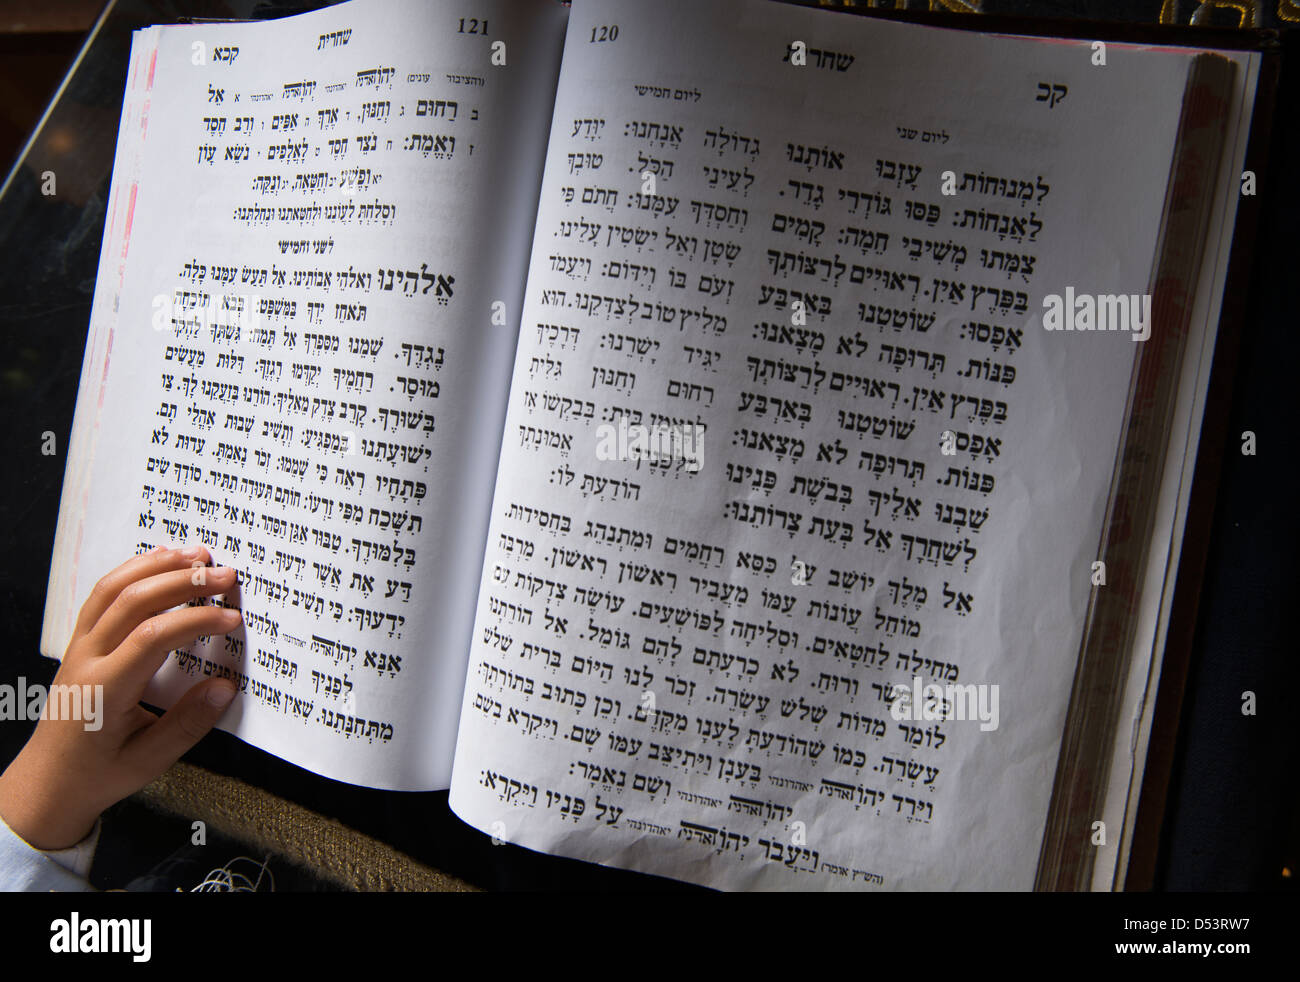 120 שחרית קכ
ליום שני
לִמְנוּחוֹת. עָזְבוּ אוֹתָנוּ
לַאֲנָחוֹת: פַּסּוּ גּוֹדְרֵי גָדֵר.
צֻמָּתוּ מְשִׁיבֵי חֵמָה: קָמִים
בַּפֶּרֶץ אַיִן. רְאוּיִים לְרַצּוֹתְךָ
אָפֵסוּ: שׁוֹטַטְנוּ בְּאַרְבַּע
פִּנּוֹת. תְּרוּפָה לֹא מָצָאנוּ:
בַּפֶּרֶץ אַיִן. רְאוּיִים לְרַצּוֹתְךָ
אָפֵסוּ: שׁוֹטַטְנוּ בְּאַרְבַּע
פִּנּוֹת. תְּרוּפָה לֹא מָצָאנוּ:
שַׁבְנוּ אֵלֶיךָ בְּבֹשֶׁת פָּנֵינוּ
לְשַׁחֲרָךְ אֵל בְּעֵת צָרוֹתֵנוּ:
ליום חמישי
גְדוֹלָה אֲנָחְנוּ: יִוָּדַע
לְעֵינֵי הַכֹּל. טוּבְךָ
וְחַסְדְּךָ עִמָּנוּ: חֲתֹם פִּי
שָׂטָן וְאַל יַשְׂטִין עָלֵינוּ.
זְעֹם בּוֹ וְיִדּוֹם: וְיַעֲמֹד
מֵלִיץ טוֹב לְצַדְּקֵנוּ. הוּא
יַגִּיד יָשְׁרֵנוּ: דְּרָכֶיךָ
רַחוּם וְחַנּוּן גִּלִּיתָ
לְנֶאֱמַן בָּיִת: בְּבַקְשׁוֹ אָז
מִלְּפָנֶיךָ אֱמוּנָתְךָ
הוֹדַעְתָּ לּוֹ:
אֵל מֶלֶךְ יוֹשֵׁב עַל כִּסֵּא רַחֲמִים וּמִתְנַהֵג בַּחֲסִידוּת.
מוֹחֵל עֲוֹנוֹת עַמּוֹ מַעֲבִיר רִאשׁוֹן רִאשׁוֹן. מַרְבֶּה
מְחִילָה לַחַטָּאִים. וּסְלִיחָה לַפּוֹשְׁעִים. עוֹשֶׂה צְדָקוֹת עִם
כָּל בָּשָׂר וְרוּחַ. לֹא כְרָעָתָם לָהֶם גּוֹמֵל. אֵל הוֹרֵתָנוּ
לוֹמַר מִדּוֹת שְׁלֹשׁ עֶשְׂרֵה. זְכֹר לָנוּ הַיּוֹם בְּרִית שְׁלֹשׁ
עֶשְׂרֵה. כְּמוֹ שֶׁהוֹדַעְתָּ לֶעָנָו מִקֶּדֶם. וְכֵן כָּתוּב בְּתוֹרָתֶךָ:
וַיֵּרֶד יְהֹוָה יאהדונהי בֶּעָנָן וַיִּתְיַצֵּב עִמּוֹ שָׁם. וַיִּקְרָא בְשֵׁם,
יְהֹוָה יאהדונהי וְשָׁם נֶאֱמַר:
(הש״ץ אומר) וַיַּעֲבֹר יְהֹוָה יאהדונהי עַל פָּנָיו וַיִּקְרָא:
קכא שחרית 121
(והציבור עונים) יְהֹוָה יאהדונהי יְהֹוָה יאהדונהי א אֵל
ב רַחוּם ג וְחַנּוּן, ד אֶרֶךְ ה אַפַּיִם ו וְרַב חֶסֶד
ז וֶאֱמֶת: ח נֹצֵר חֶסֶד ט לָאֲלָפִים י נֹשֵׂא עָוֹן
יא וָפֶשַׁע יב וְחַטָּאָה, יג וְנַקֵּה:
וְסָלַחְתָּ לַעֲוֹנֵנוּ וּלְחַטָּאתֵנוּ וּנְחַלְתָּנוּ:
לשני וחמישי
אֱלֹהֵינוּ וֵאלֹהֵי אֲבוֹתֵינוּ. אַל תַּעַשׂ עִמָּנוּ כָּלָה.
תֹּאחֵז יָדְךָ בַּמִּשְׁפָּט: בְּבֹא תוֹכֵחָה
נֶגְדֶּךָ. שְׁמֵנוּ מִסִּפְרְךָ אַל תֶּמַח: גִּשְׁתְּךָ לַחְקֹר
מוּסָר. רַחֲמֶיךָ יְקַדְּמוּ רָגְזֶךָ: דַּלּוּת מַעֲשִׂים
בְּשׁוּרֶךָ. קָרֵב צֶדֶק מֵאֵלֶיךָ: הוֹרֵנוּ בְּזַעֲקֵנוּ לָךְ. צַו
יְשׁוּעָתֵנוּ בְּמַפְגִּיעַ: וְתָשִׁיב שְׁבוּת אָהֳלֵי תָם.
פְּתָחָיו רְאֵה כִּי שָׁמֵמוּ: זְכֹר נָאַמְתָּ. עֵדוּת לֹא
תִשָּׁכַח מִפִּי זַרְעוֹ: חוֹתָם תְּעוּדָה תַּתִּיר. סוֹדְךָ שִׂים
בְּלִמּוּדֶךָ. טַבּוּר אַגַּן הַסַּהַר. נָא אַל יֶחְסַר הַמָּזֶג: יָהּ
דַּע אֶת אֲשֶׁר יְדָעוּךָ. מַגֵּר אֶת הַגּוֹי אֲשֶׁר לֹא
יְדָעוּךָ: כִּי תָשִׁיב לְבִצָּרוֹן
אָנָּא יְהֹוָה יאהדונהי אֱלֹהֵינוּ
לְפָנֶיךָ תְּפִלָּתֵנוּ. וְאַל
מִתְּחִנָּתֵנוּ. שֶׁאֵין אֲנַחְנוּ עַזֵּי פָנִים וּקְשֵׁי
alamy
Image ID: D53RW7
www.alamy.com